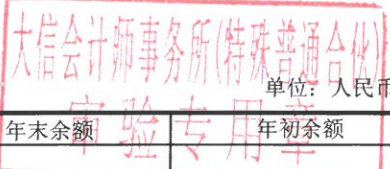 大信会计师事务所(特殊普通合伙)
单位：人民币
审验专用章
年末余额 年初余额